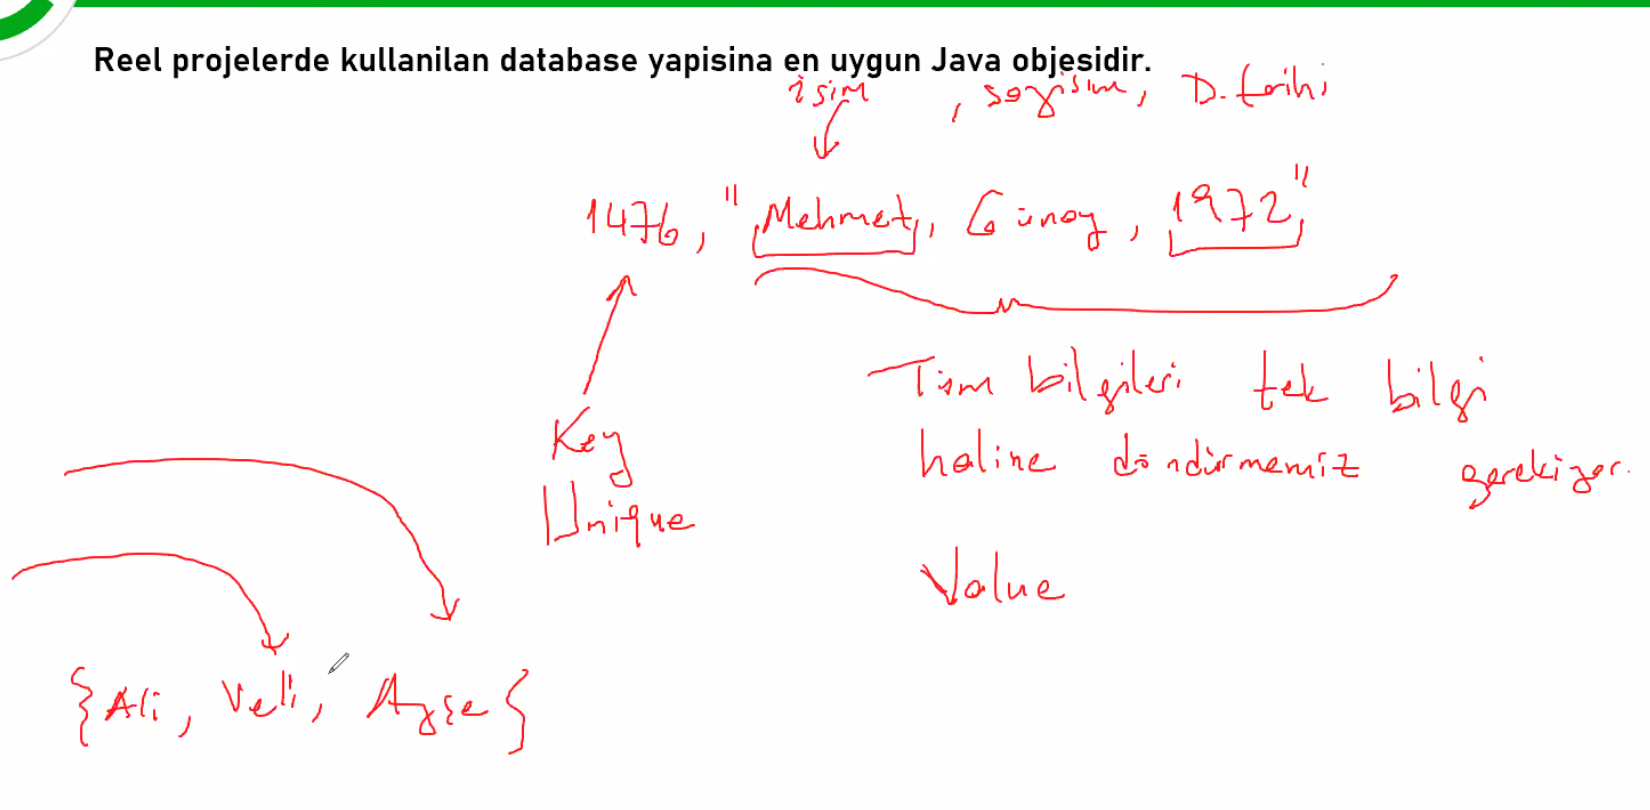 Reel projelerde kullanilan database yapisina en uygun Java objesidir.
isim , soyisim, D. tarihi
1476, "Mehmet, Günay, 1972"
Tüm bilgileri tek bilgi
haline döndürmemiz gerekiyor.
Key
Unique
Value
{Ali, Veli, Ayşe}